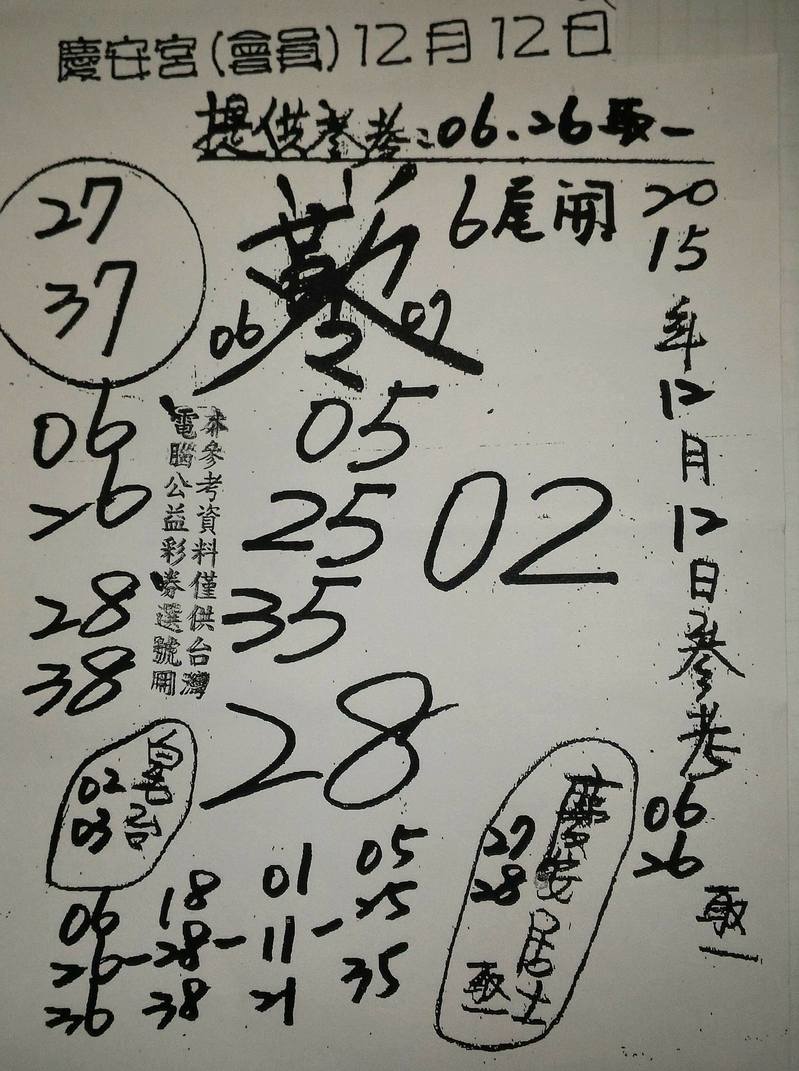 慶安宮(會員)12月12日
提供參考:06.26取一
27
37
6尾開
06
07
2
06
26
28
38
本參考資料僅供台灣
電腦公益彩券選號用
05
25
35
02
28
2015年12月12日參考
06
26
取一
02
03
慶安居士
27
28
取一
06 18 01 05
26-28-11-25
36 38 21 35